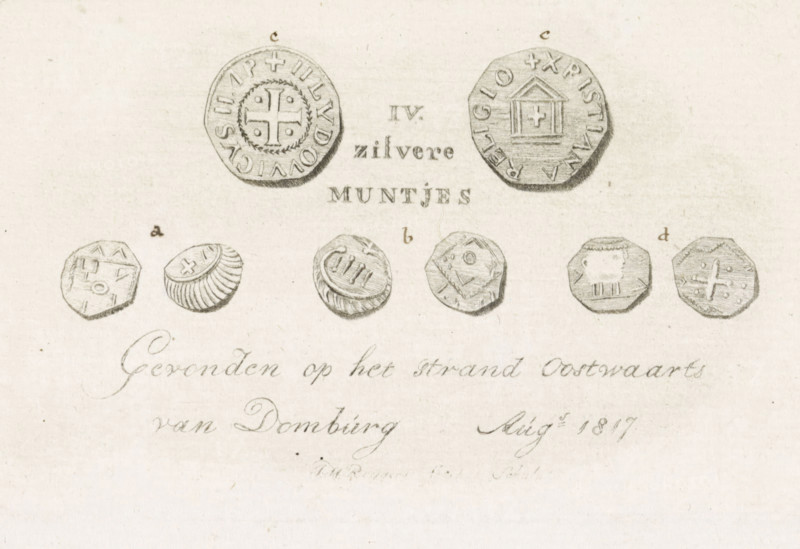 c c
HLVDOVVICVS IMP
XPISTIANA RELIGIO
IV.
zilvere
MUNTJES
a b d
Gevonden op het strand Oostwaarts
van Domburg Augs. 1817